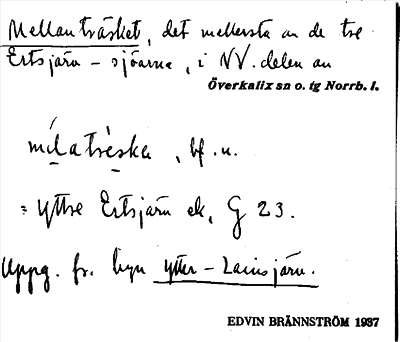 Mellanträsket, det mellersta av de tre
Ertsjärv-sjöarna, i NV.delen av
Överkalix sn o. tg Norrb. l.
mílatrèska, bf. n.
= Yttre Ertsjärv ek, G 23.
Uppg. fr. byn Ytter-Lansjärv.
EDVIN BRÄNNSTRÖM 1937